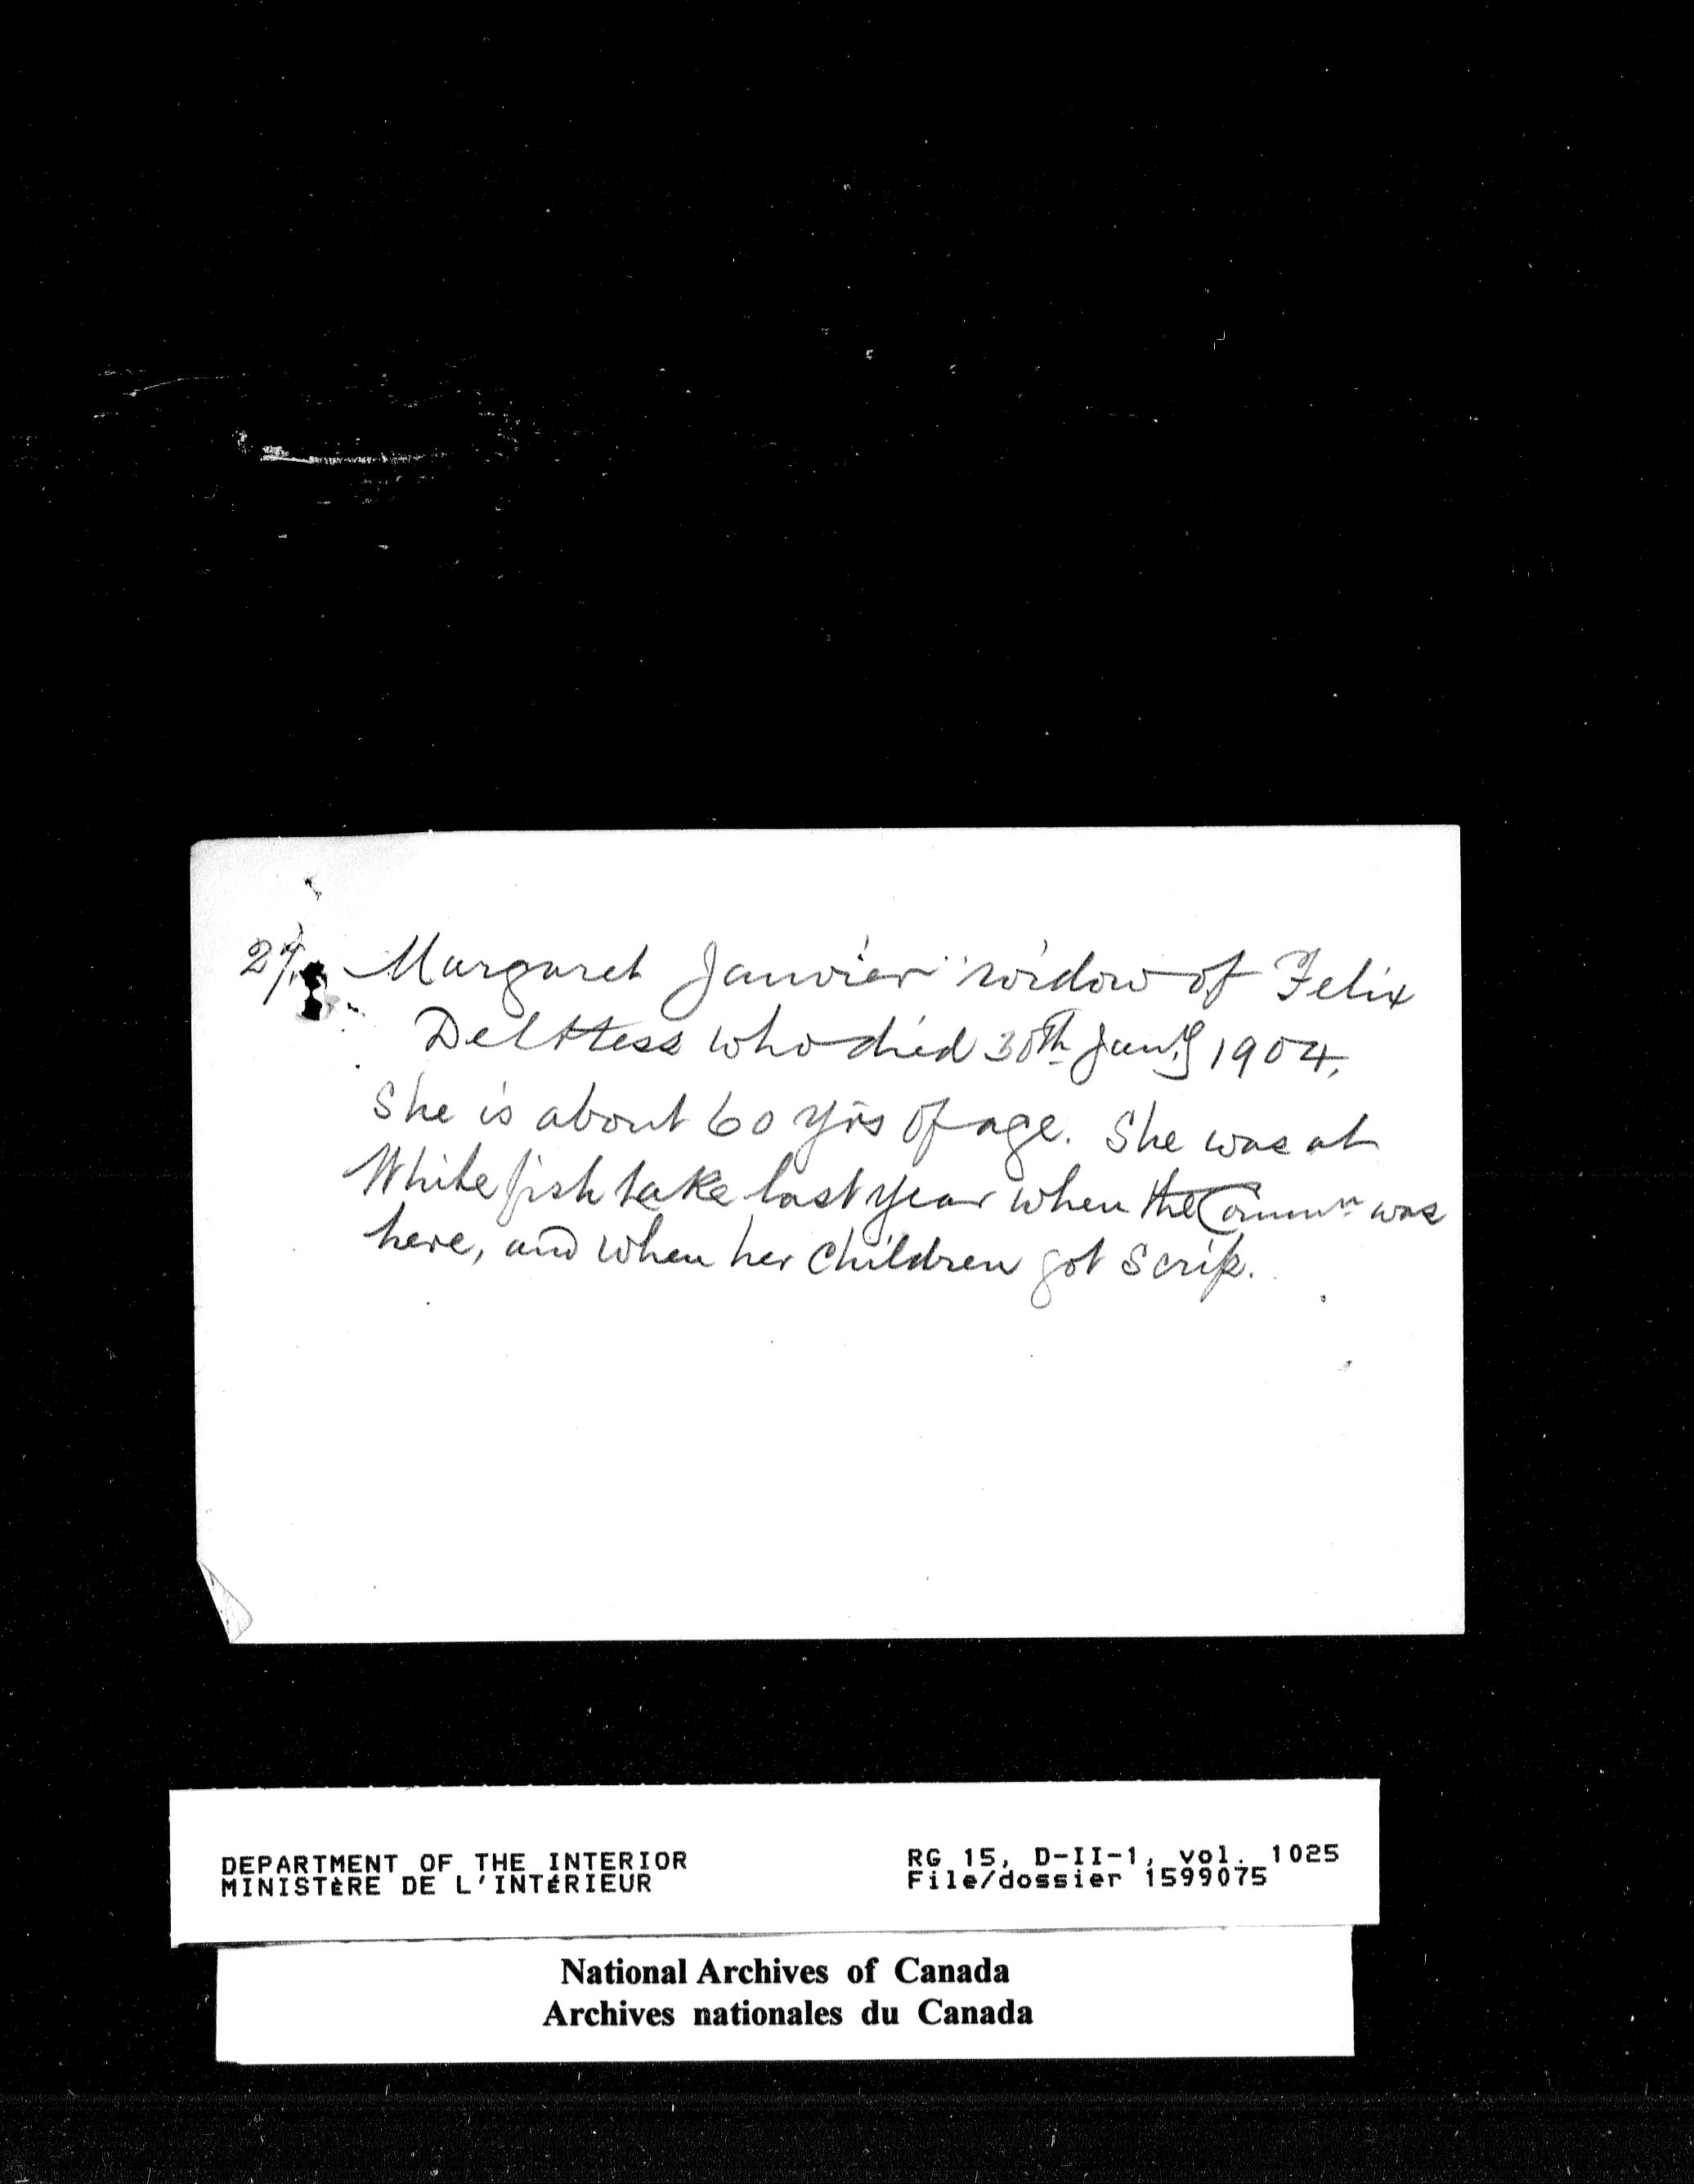 27. Margaret Janvier widow of Felix
Delttess who died 30th Jany 1904,
She is about 60 yrs of age. She was at
Whitefish Lake last year when the Commrn was
here, and when her children got Scrip.
DEPARTMENT OF THE INTERIOR
MINISTÈRE DE L'INTÉRIEUR
RG 15, D-II-1, vol. 1025
File/dossier 1599075
National Archives of Canada
Archives nationales du Canada